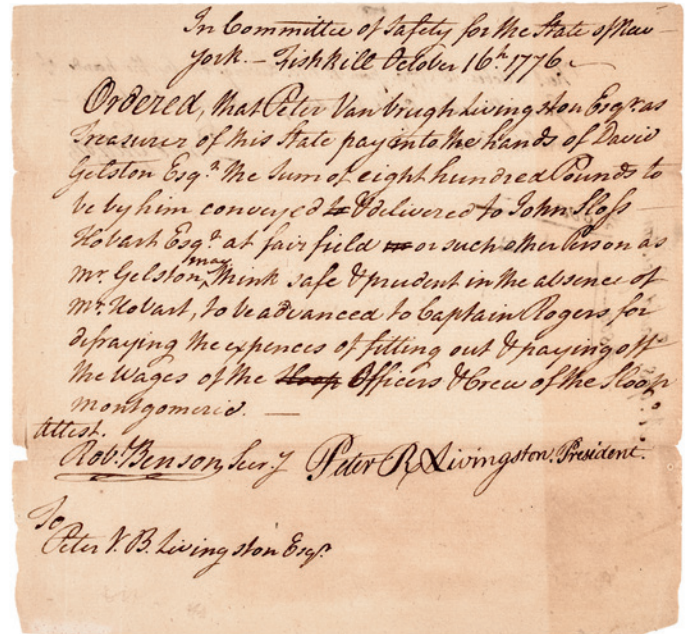 In Committee of Safety for the State of New
York. – Fishkill October 16th. 1776. –
Ordered, that Peter Van brugh Livingston Esqr. as
Treasurer of this State pay into the hands of David
Gelston Esqr. the Sum of eight hundred Pounds to
be by him conveyed to & delivered to John Sloss
Hobart Esqr. at fairfield or such other Person as
may
mr. Gelston think safe & prudent in the absence of
mr. Hobart, to be advanced to Captain Rogers for
defraying the expences of fitting out & paying off
the Wages of the Sloop Officers & Crew of the Sloop
Montgomerie. —
Attest.
Robt. Benson, Secr.y Peter R Livingston. President.
To
Peter V. B. Livingston Esqr.